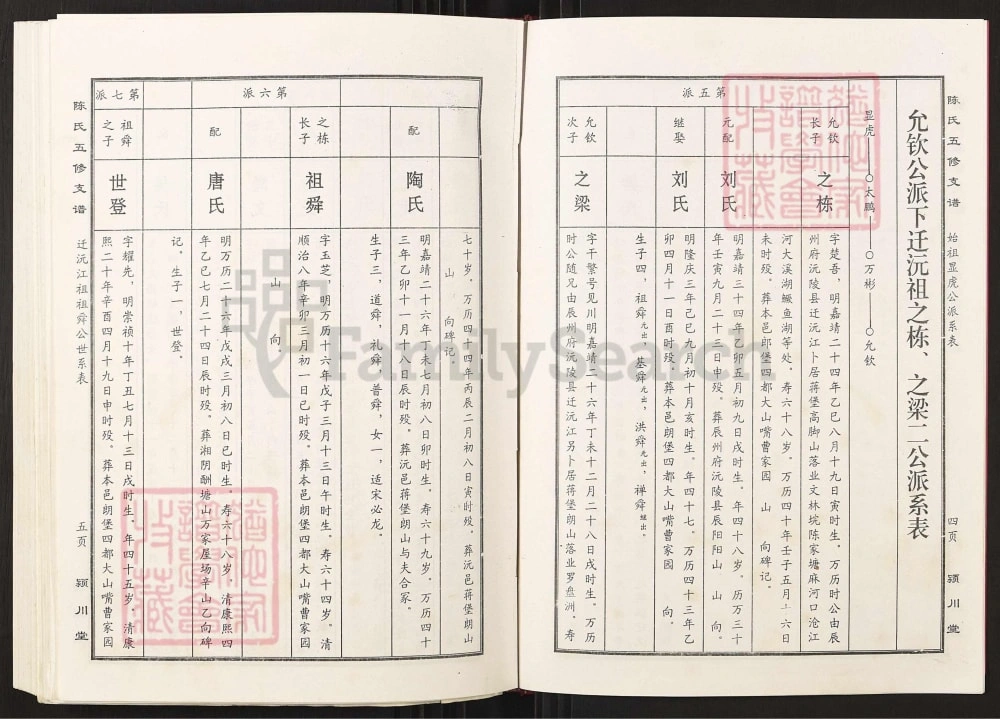 陈氏五修支谱
始祖显虎公派系表
四页
颍川堂
允钦公派下迁沅祖之栋、之梁二公派系表
显虎——○太鹏——○万彬——○允钦
第五派
允钦长子
之栋
字楚吾,明嘉靖二十四年乙巳八月十九日寅时生。万历时公由辰
州府沅陵县迁沅江卜居蒋堡高脚山落业文林垸陈家塘麻河口沧江
河大溪湖鳜鱼湖等处。寿六十八岁。万历四十年壬子五月十六日
未时殁。葬本邑郎堡四都大山嘴曹家园 山 向碑记。
元配
刘氏
明嘉靖三十四年乙卯五月初九日戌时生。年四十八岁。历万三十
年壬寅九月二十三日申时殁。葬辰州府沅陵县辰阳阳山 山 向。
继娶
刘氏
明隆庆三年己巳九月初十月亥时生。年四十七。万历四十三年乙
卯四月十一日酉时殁。葬本邑朗堡四都大山嘴曹家园 向。
生子四,祖舜元出,基舜元出,洪舜元出,禅舜继出。
允钦次子
之梁
字干繁号见川明嘉靖二十六年丁未十二月二十八日戌时生。万历
时公随兄由辰州府沅陵县迁沅江另卜居蒋堡朗山落业罗盘洲。寿
七十岁。万历四十四年丙辰二月初八日寅时殁。葬沅邑蒋堡朗山
山 向碑记。
第六派
配
陶氏
明嘉靖二十六年丁未七月初八日卯时生。寿六十九岁。万历四十
三年乙卯十一月十八日辰时殁。葬沅邑蒋堡朗山与夫合冢。
生子三,道舜,礼舜,普舜,女一,适宋必龙。
之栋长子
祖舜
字玉芝,明万历十六年戊子三月十三日午时生。寿六十四岁。清
顺治八年辛卯三月初一日巳时殁。葬本邑朗堡四都大山嘴曹家园
山 向。
配
唐氏
明万历二十六年戊戌三月初八日巳时生。寿六十八岁。清康熙四
年乙巳七月二十四日辰时殁。葬湘阴酬塘山万家屋场辛山乙向碑
记。生子一,世登。
第七派
祖舜之子
世登
字耀先,明崇祯十年丁丑七月十三日戌时生。年四十五岁。清康
熙二十年辛酉四月十九日申时殁。葬本邑朗堡四都大山嘴曹家园
陈氏五修支谱
迁沅江祖祖舜公世系表
五页
颍川堂
FamilySearch